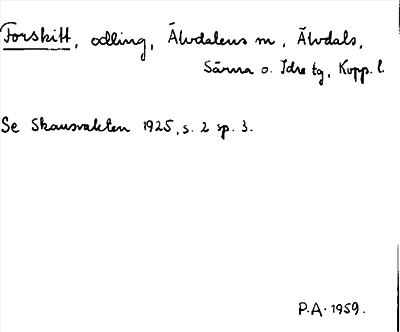 Forskitt, odling, Älvdalens m, Älvdals,
Särna o. Idre tg, Kopp. l.
Se Skausvakten 1925, s. 2 sp. 3.
P.A. 1959.